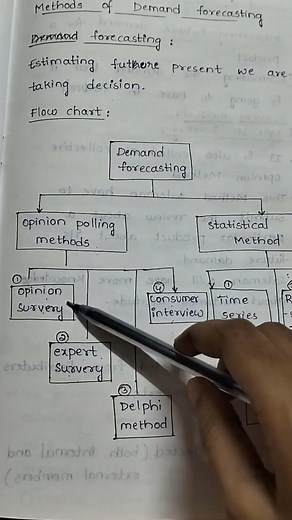 Methods of Demand forecasting
Demand forecasting :
Estimating future present we are
taking decision.
Flow chart :
Demand
forecasting
opinion polling
methods
Statistical
Method
①
opinion
survery
④
Consumer
interview
①
Time
series
②
expert
survery
③
Delphi
method